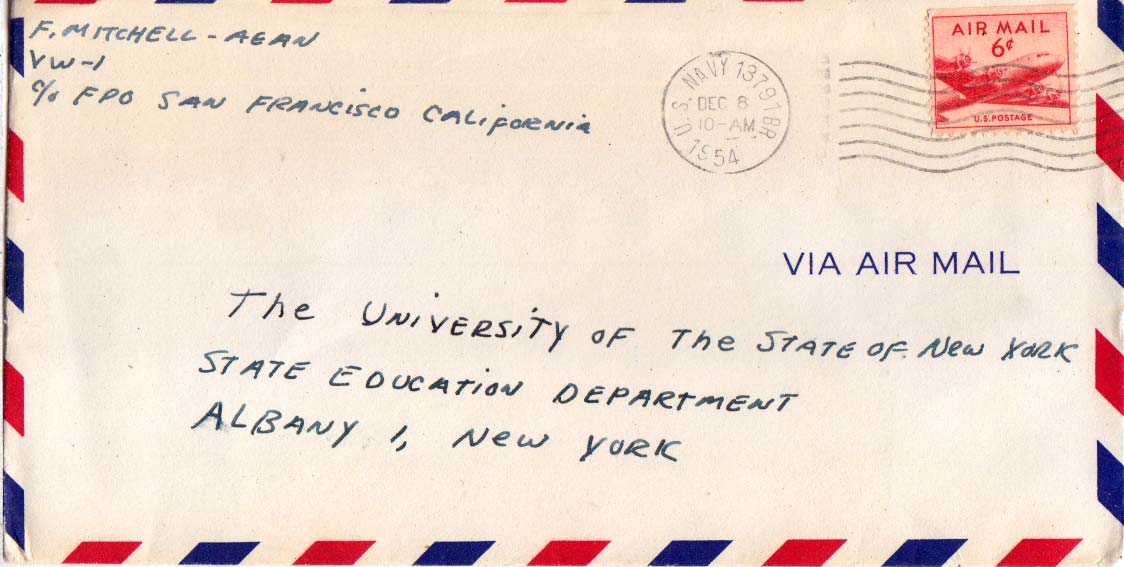 F. MITCHELL - AGAN
VW-1
c/o FPO SAN FRANCISCO CALIFORNIA
U.S. NAVY 13797 BR.
DEC 8
10-AM
1954
AIR MAIL
6¢
U.S. POSTAGE
VIA AIR MAIL
The UNIVERSITY OF The STATE OF NEW YORK
STATE EDUCATION DEPARTMENT
ALBANY 1, NEW YORK